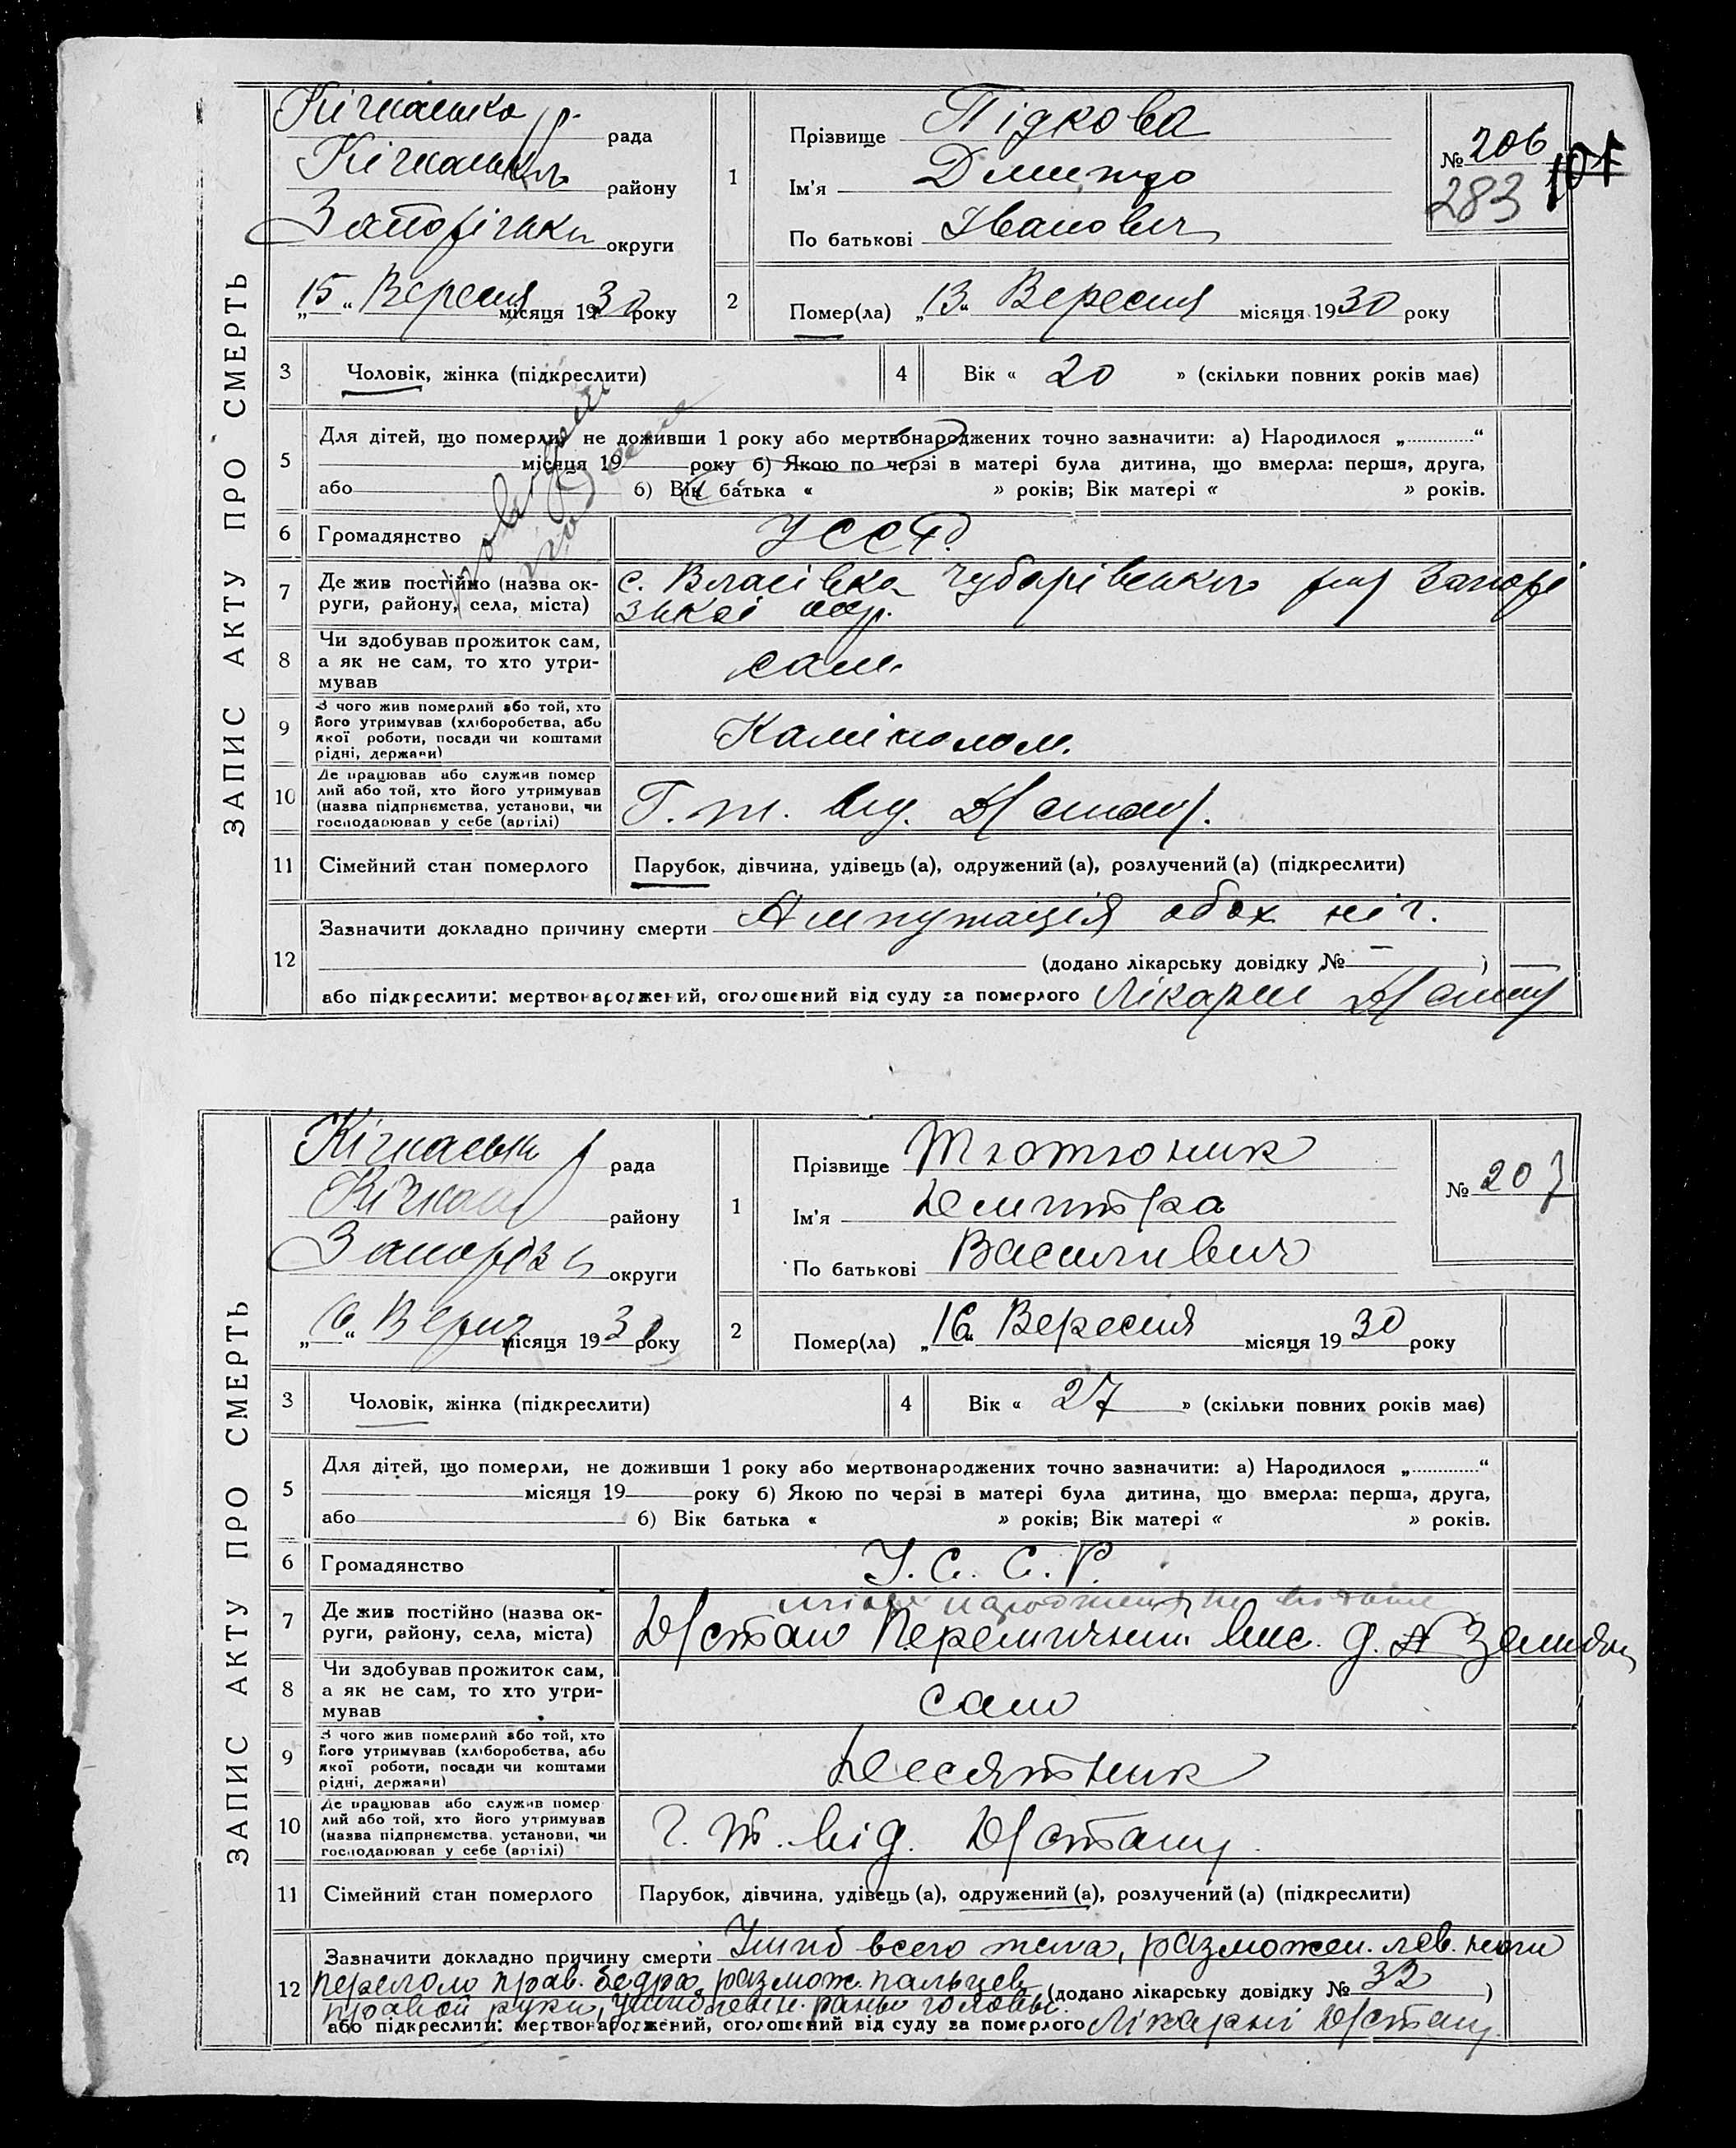 ЗАПИС АКТУ ПРО СМЕРТЬ
Кічкаська р. рада
Кічкаськ району
округи
„15“ Вересня місяця 1930 року
1
Прізвище Підкова
Ім'я Дмитро
По батькові Іванович
№ 206
283
107
2
Помер(ла) „13“ Вересня місяця 1930 року
3 Чоловік, жінка (підкреслити)
4 Вік « 20 » (скільки повних років має)
5
Для дітей, що померли, не доживши 1 року або мертвонароджених точно зазначити: а) Народилося „ “
місяця 19 року б) Якою по черзі в матері була дитина, що вмерла: перша, друга,
або б) Вік батька « » років; Вік матері « » років.
6 Громадянство УССР.
7 Де жив постійно (назва ок-
руги, району, села, міста)
с. Власівка Чубарівського
окр.
8 Чи здобував прожиток сам,
а як не сам, то хто утри-
мував
сам.
9 З чого жив померлий або той, хто
його утримував (хліборобства, або
якої роботи, посади чи коштами
рідні, держави)
Каміколом.
10 Де працював або служив помер
лий або той, хто його утримував
(назва підприємства, установи, чи
господарював у себе (артілі)
Г. т. від. Д/стану.
11 Сімейний стан померлого
Парубок, дівчина, удівець (а), одружений (а), розлучений (а) (підкреслити)
12
Зазначити докладно причину смерти Ампутація обох ніг.
(додано лікарську довідку № — )
або підкреслити: мертвонароджений, оголошений від суду за померлого Лікарні Д/стану
ЗАПИС АКТУ ПРО СМЕРТЬ
Кічкаськ р рада
Кічкас району
Запоріз округи
„16“ місяця 1930 року
1
Прізвище Тютюник
Ім'я Дмитра
По батькові Василивич
№ 207
2
Помер(ла) „16“ Вересня місяця 1930 року
3 Чоловік, жінка (підкреслити)
4 Вік « 27 » (скільки повних років має)
5
Для дітей, що померли, не доживши 1 року або мертвонароджених точно зазначити: а) Народилося „ “
місяця 19 року б) Якою по черзі в матері була дитина, що вмерла: перша, друга,
або б) Вік батька « » років; Вік матері « » років.
6 Громадянство У. С. С. Р.
7 Де жив постійно (назва ок-
руги, району, села, міста)
місце народження не
Д/стан вис. д.
8 Чи здобував прожиток сам,
а як не сам, то хто утри-
мував
сам
9 З чого жив померлий або той, хто
його утримував (хліборобства, або
якої роботи, посади чи коштами
рідні, держави)
Десятник
10 Де працював або служив помер
лий або той, хто його утримував
(назва підприємства, установи, чи
господарював у себе (артілі)
Г. т. від. Д/стану
11 Сімейний стан померлого
Парубок, дівчина, удівець (а), одружений (а), розлучений (а) (підкреслити)
12
Зазначити докладно причину смерти Ушиб всего тела, размозжен. лев. ноги
перелом прав. бедра, размож. пальцев (додано лікарську довідку № 32 )
правой руки, раны головы.
або підкреслити: мертвонароджений, оголошений від суду за померлого Лікарні Д/стану.